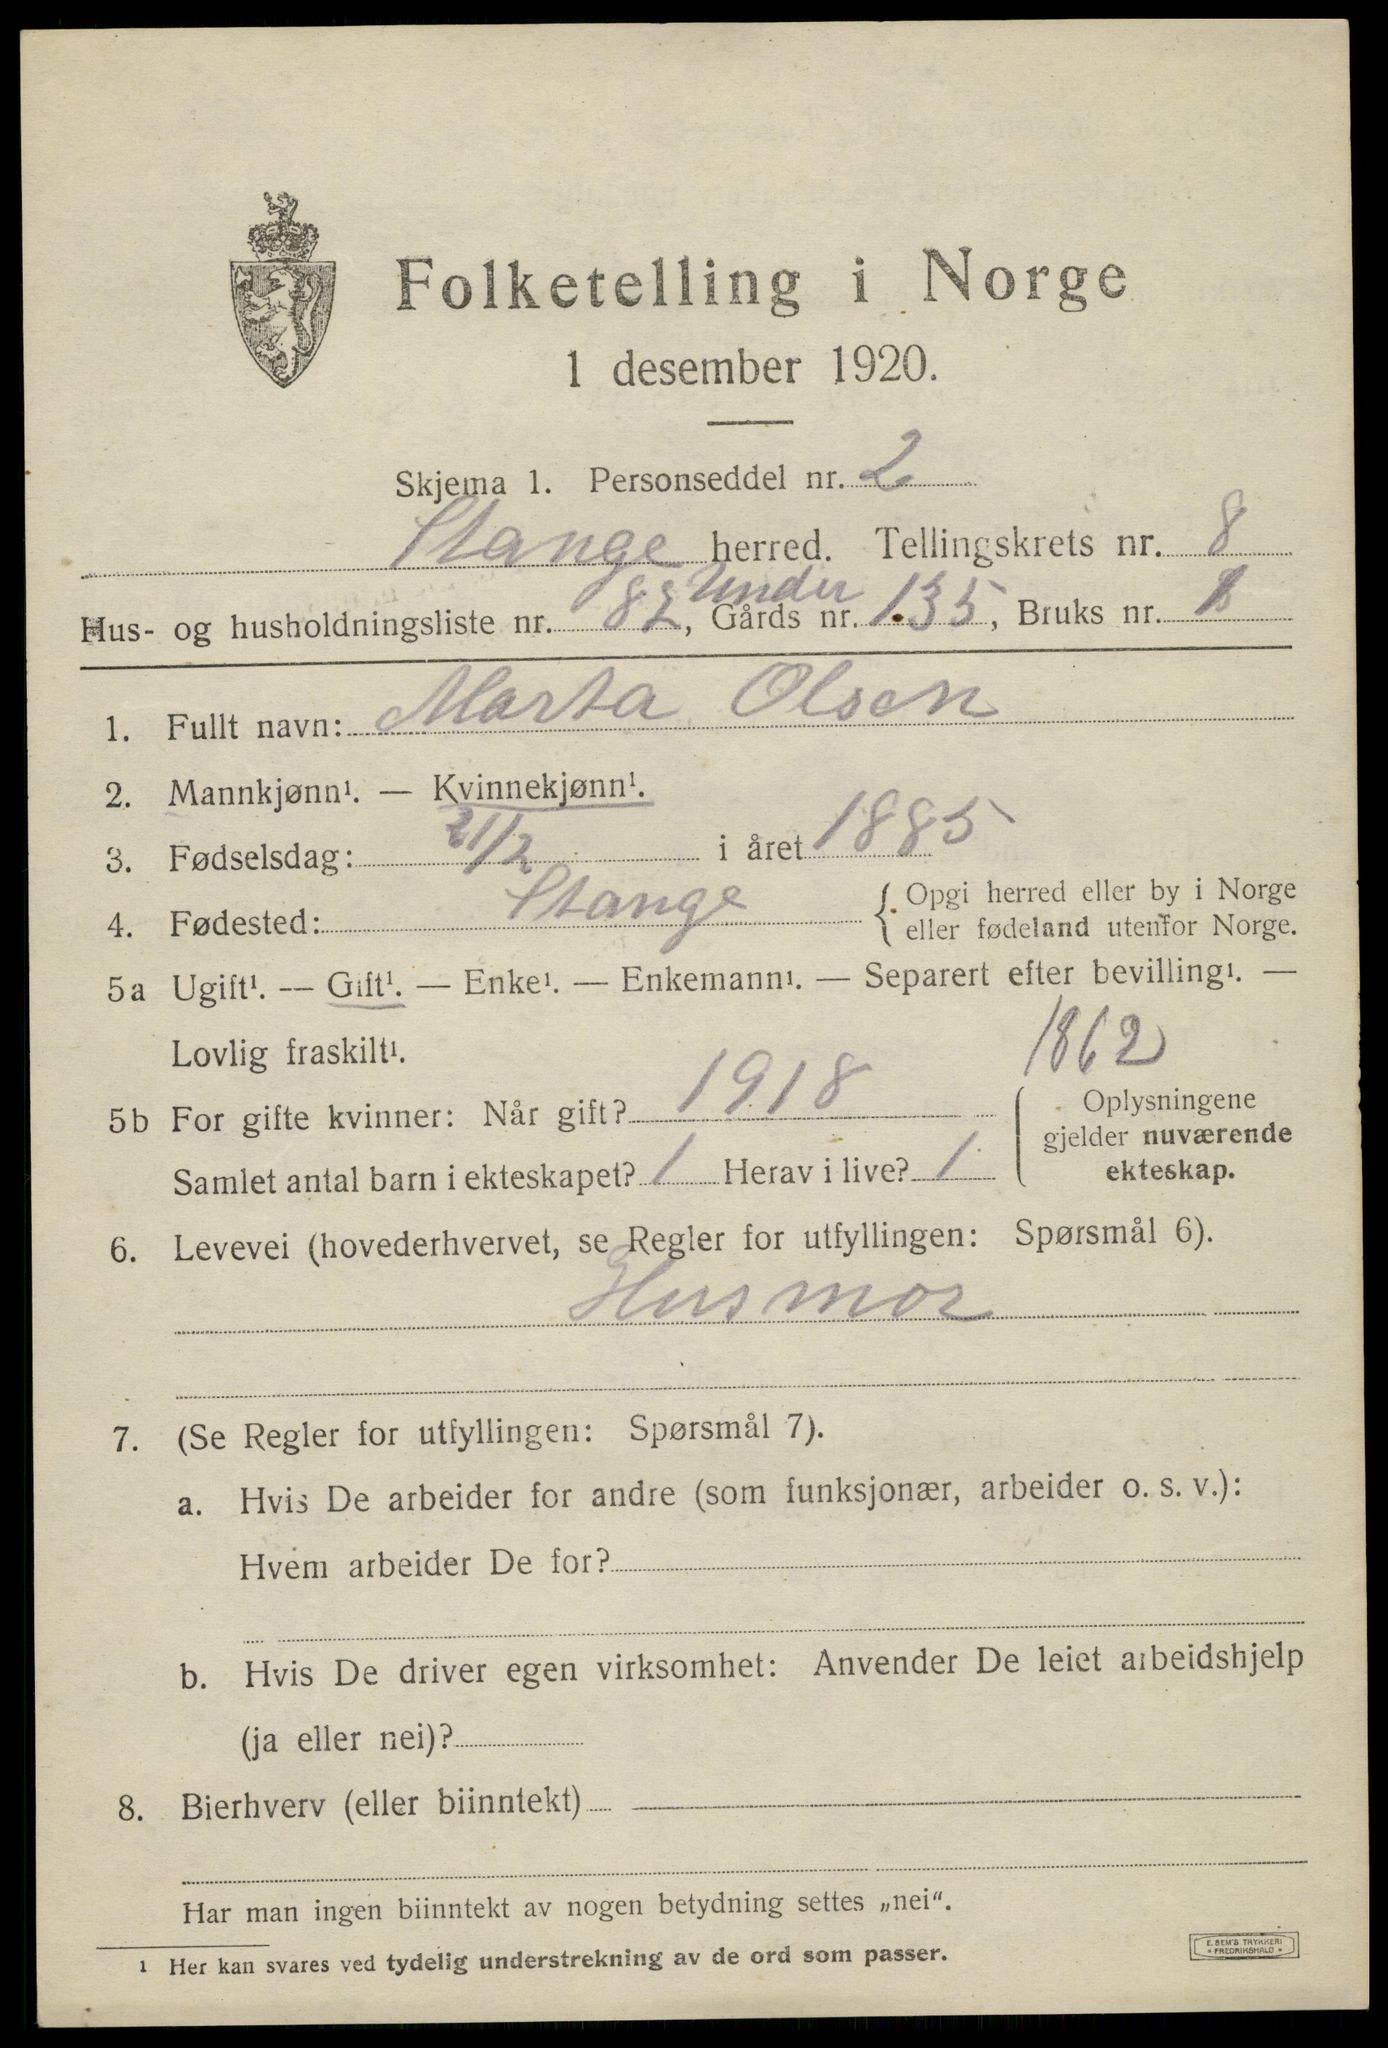 Folketelling i Norge
1 desember 1920.
Skjema 1. Personseddel nr. 2
Stange herred. Tellingskrets nr. 8
Under
Hus- og husholdningsliste nr. 82, Gårds nr. 135, Bruks nr.
1. Fullt navn: Marta Olsen
2. Mannkjønn¹. — Kvinnekjønn¹.
3. Fødselsdag: 21/2 i året 1885
4. Fødested: Stange { Opgi herred eller by i Norge
eller fødeland utenfor Norge.
5a Ugift¹. — Gift¹. — Enke¹. — Enkemann¹. — Separert efter bevilling¹. —
Lovlig fraskilt¹.
1862
5b For gifte kvinner: Når gift? 1918
Samlet antal barn i ekteskapet? 1 Herav i live? 1
Oplysningene
gjelder nuværende
ekteskap.
6. Levevei (hovederhvervet, se Regler for utfyllingen: Spørsmål 6).
Husmor
7. (Se Regler for utfyllingen: Spørsmål 7).
a. Hvis De arbeider for andre (som funksjonær, arbeider o. s. v.):
Hvem arbeider De for?
b. Hvis De driver egen virksomhet: Anvender De leiet arbeidshjelp
(ja eller nei)?
8. Bierhverv (eller biinntekt)
Har man ingen biinntekt av nogen betydning settes „nei“.
¹ Her kan svares ved tydelig understrekning av de ord som passer.
E. SEM'S TRYKKERI
* FREDRIKSHALD *